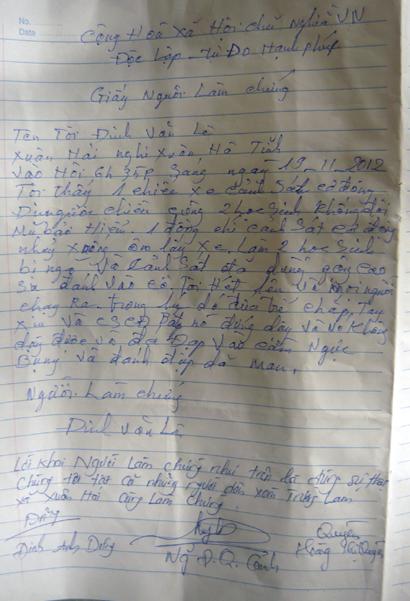 No.
Date
Cộng Hoà Xã Hội chủ Nghĩa VN
Độc Lập - Tự Do Hạnh phúc
Giấy Người Làm chứng
Tên Tôi Đinh Văn Lê
Xuân Hải nghi Xuân, Hà Tĩnh
Vào Hồi 6h35p Sáng ngày 19-11-2012
Tôi thấy 1 chiếc xe cảnh sát cơ động
ngược chiều 2 học sinh không đội
Mũ bảo Hiểm 1 đồng chí cảnh sát cơ động
nhảy xuống ôm lấy xe Làm 2 học sinh
bị ngã và cảnh sát đã dùng gậy cao
su đánh vào cổ, Tôi Hét lên và mọi người
chạy Ra. trong lúc đó đứa bé chắp Tay
Xin và CSCĐ bắt nó đứng dậy và nó không
dậy được và đã Đạp vào cằm Ngực
Bụng và đánh đập dã man.
Người Làm chứng
Đinh Văn Lê
Lời khai Người làm chứng như trên là đúng sự thật
Chúng tôi có những người dân xóm Trường Lam
xã Xuân Hải cùng Làm chứng.
Đinh Anh Dũng
Ng Đ.Q. Cảnh
Quyên
Hoàng Thị Quyên